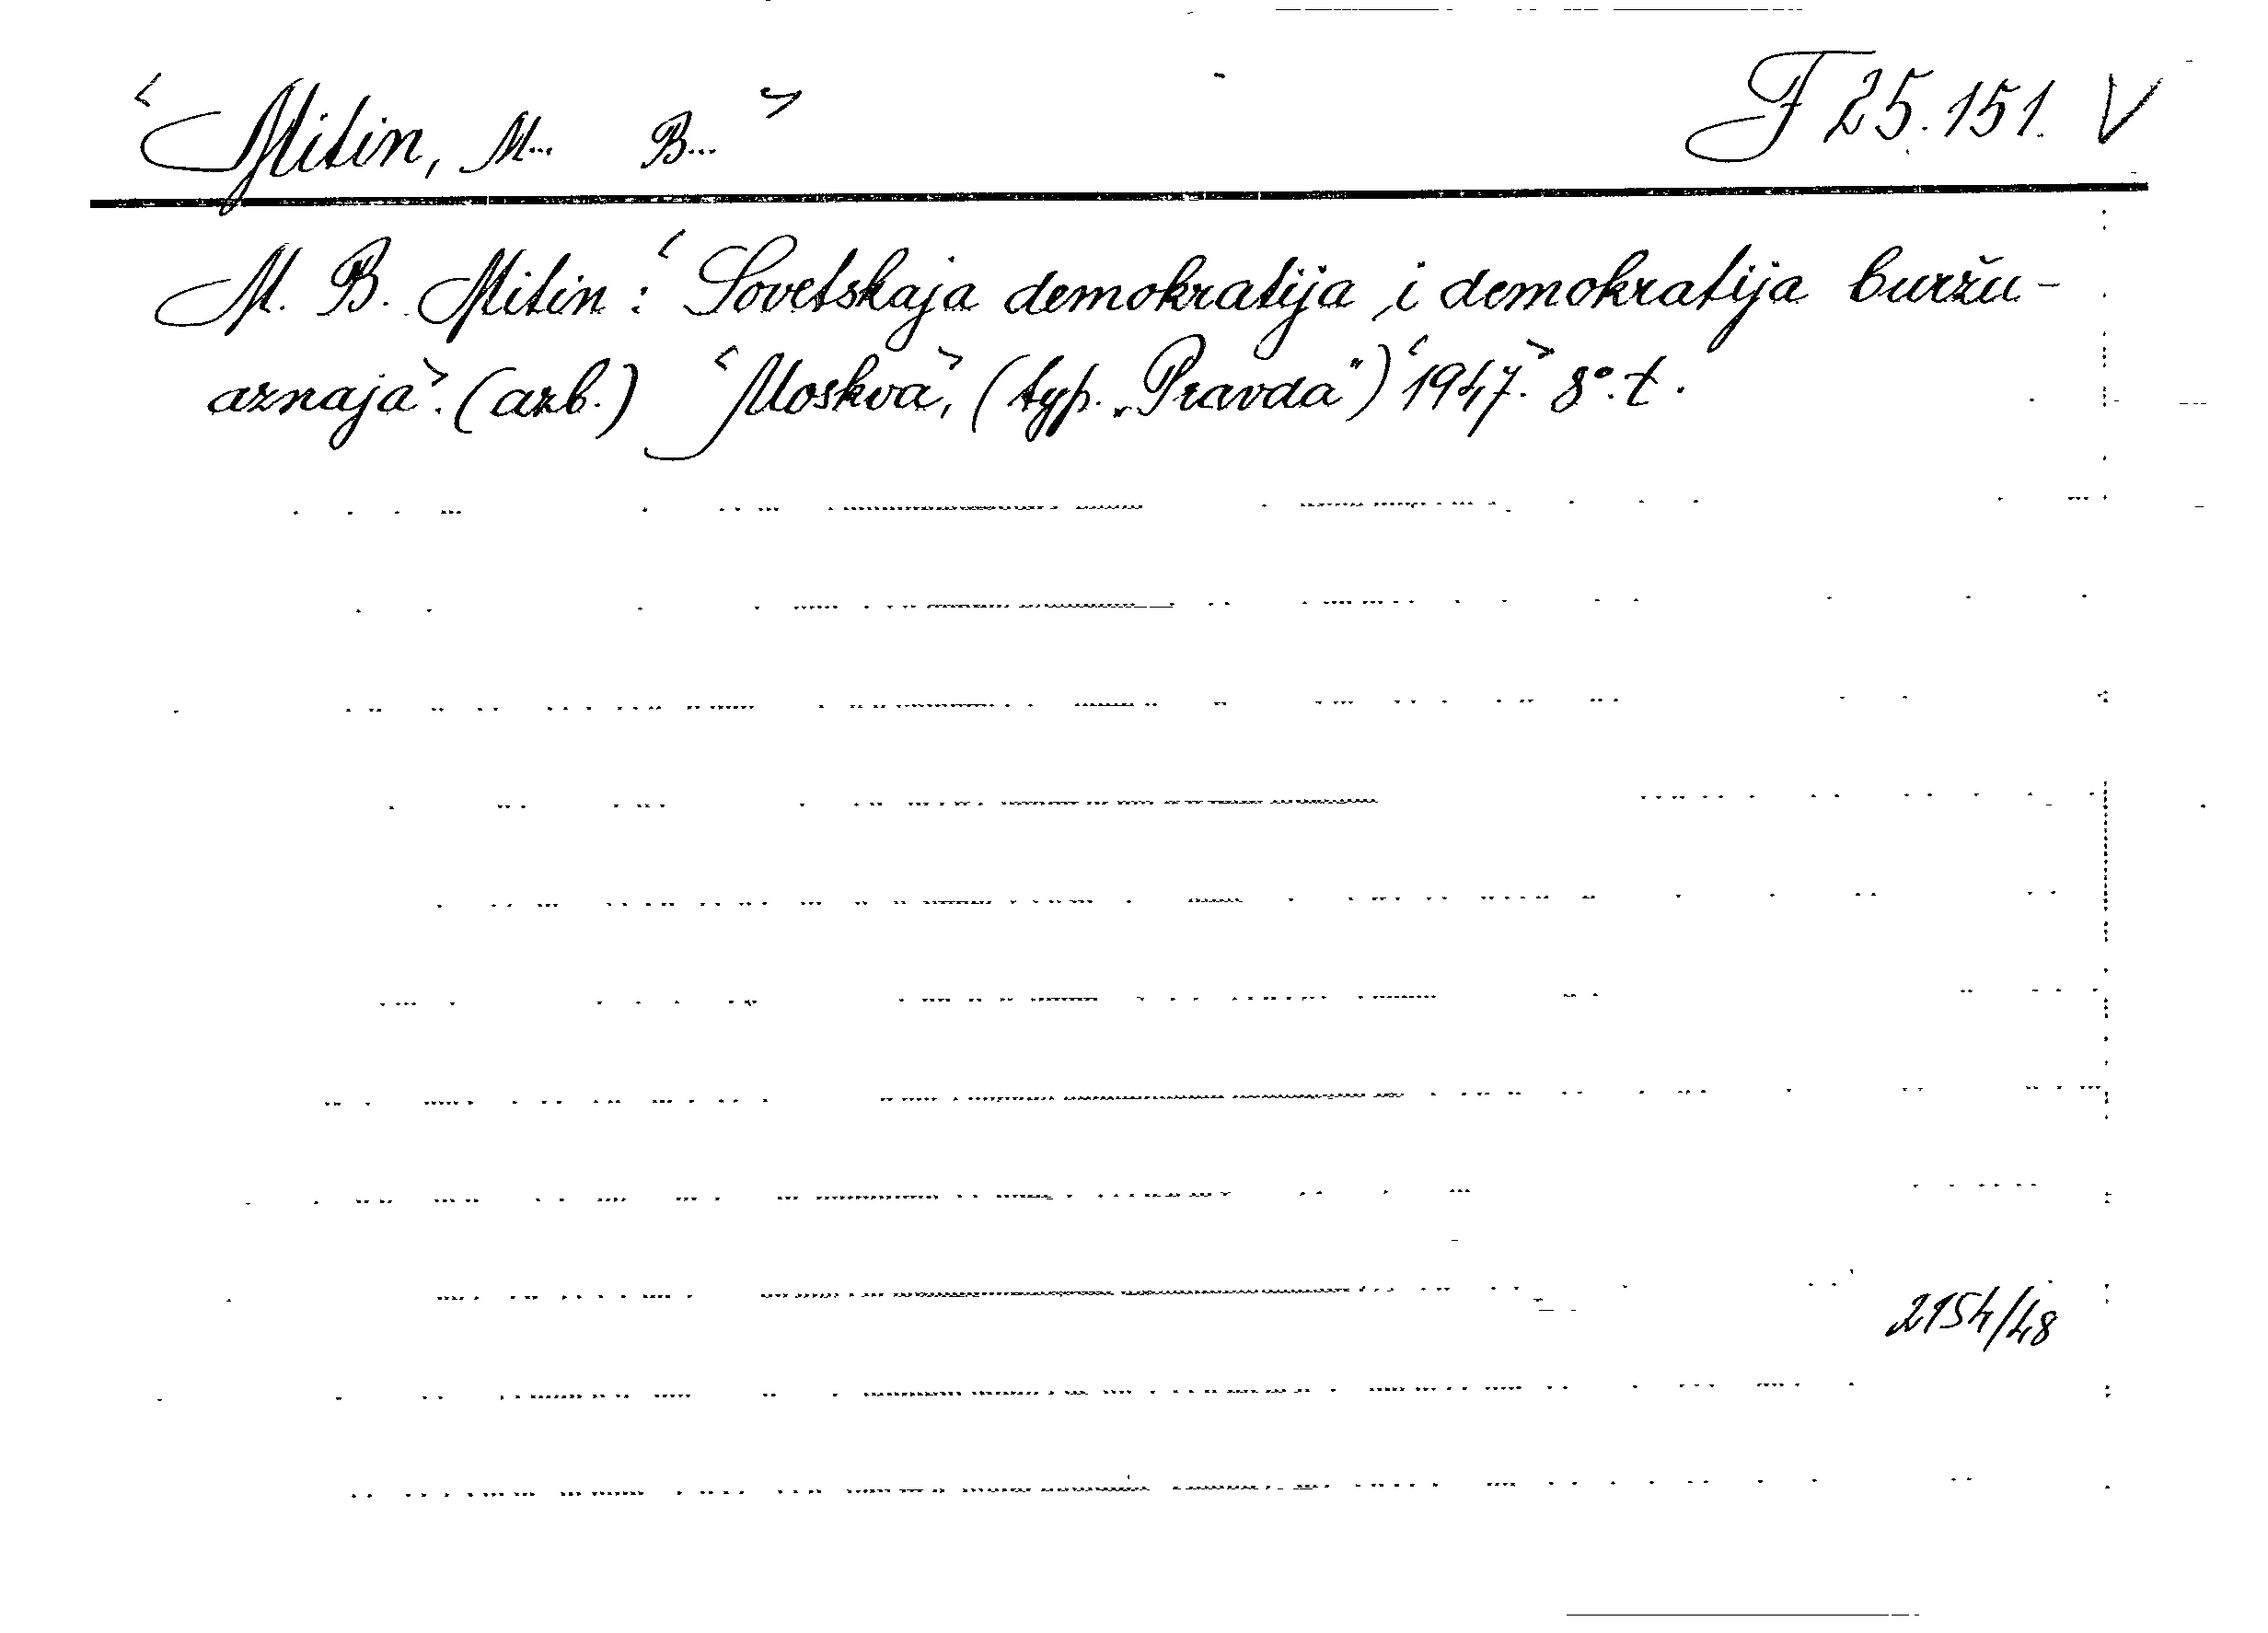 <Mitin, M... B...> F 25.151. V
M. B. Mitin: <Sovetskaja demokratija i demokratija buržu-
aznaja>. (azb.) <Moskva>, (typ. „Pravda") <1947.> 8°. t.
2154/48